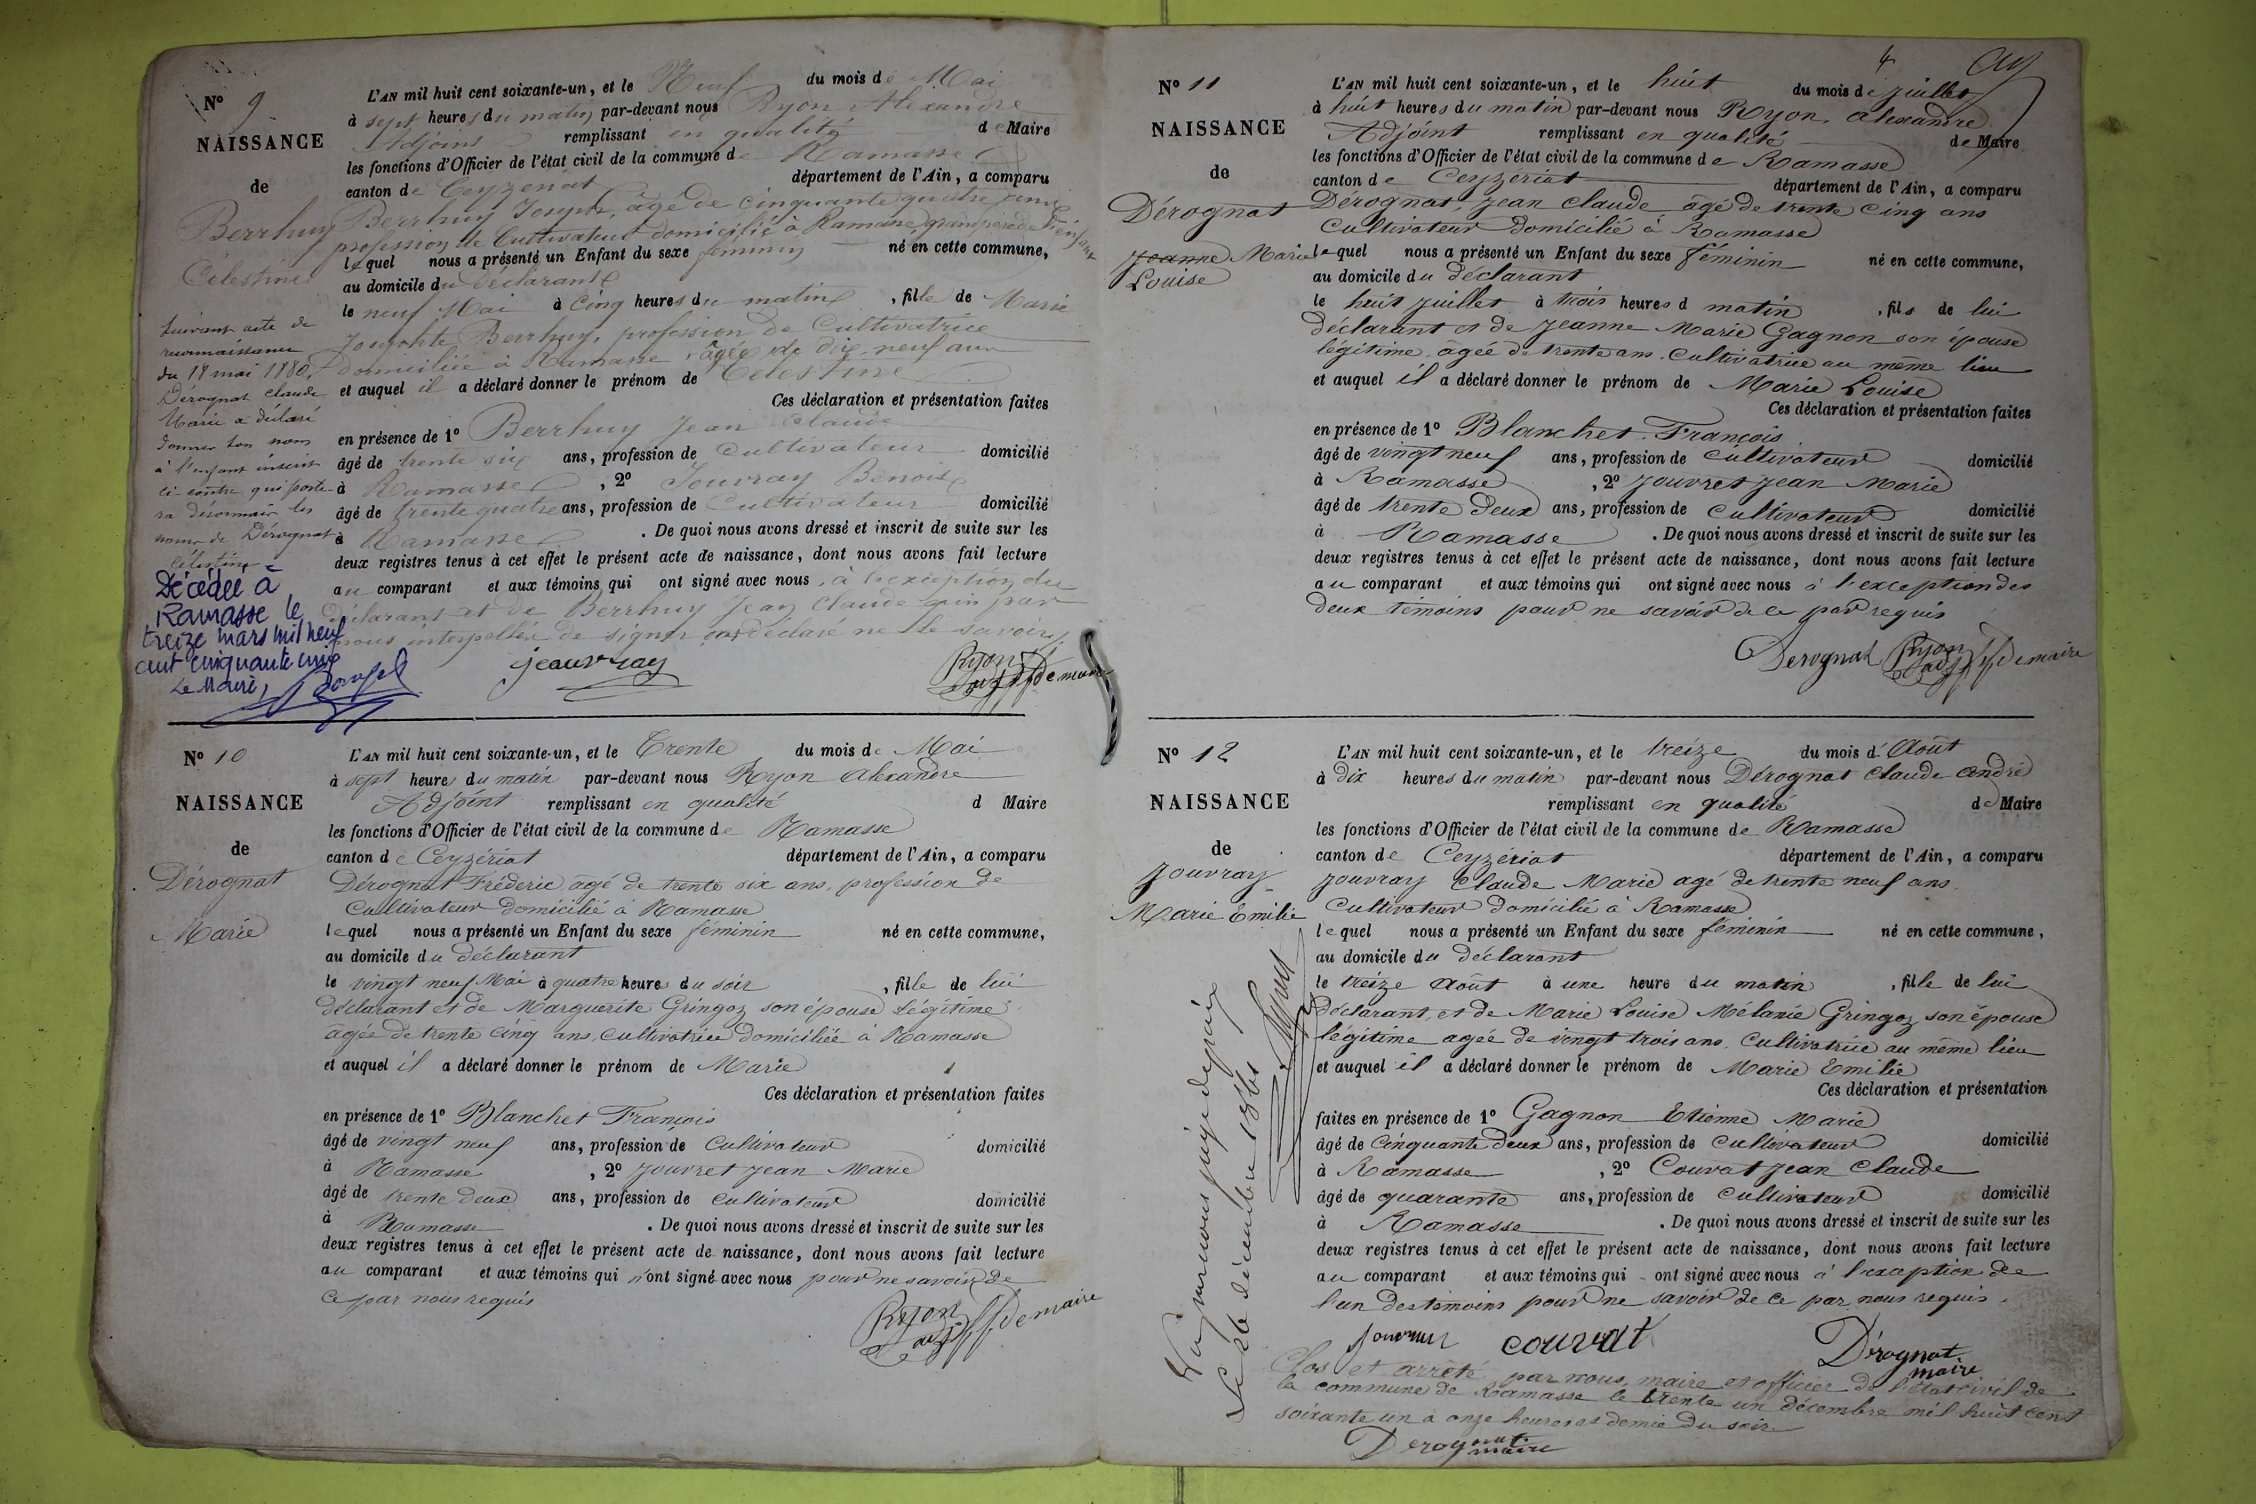 N° 9
NAISSANCE
de
Berrhuy
Célestine
Suivant acte de
reconnaissance
du 18 mai 1880,
Dérognat Claude
Marie a déclaré
donner son nom
à l'enfant inscrit
ci-contre qui porte-
ra désormais les
noms de Dérognat
Célestine
Décédée à
Ramasse le
treize mars mil neuf
cent cinquante
Le Maire,
L'AN mil huit cent soixante-un, et le Neuf du mois de Mai
à sept heures du matin par-devant nous Ryon Alexandre
Adjoint remplissant en qualité de Maire
les fonctions d'Officier de l'état civil de la commune de Ramasse
canton de Ceyzériat département de l'Ain, a comparu
Berrhuy Joseph, âgé de cinquante quatre ans
profession de Cultivateur domicilié à Ramasse grand père de l'enfant
lequel nous a présenté un Enfant du sexe féminin né en cette commune,
au domicile du déclarant
le neuf Mai à Cinq heures du matin, fille de Marie
Josephte Berrhuy, profession de Cultivatrice
domiciliée à Ramasse, âgée de dix-neuf ans
et auquel il a déclaré donner le prénom de Célestine
Ces déclaration et présentation faites
en présence de 1° Berrhuy Jean Claude
âgé de trente six ans, profession de Cultivateur domicilié
à Ramasse, 2° Jouvray Benoit
âgé de trente quatre ans, profession de Cultivateur domicilié
à Ramasse. De quoi nous avons dressé et inscrit de suite sur les
deux registres tenus à cet effet le présent acte de naissance, dont nous avons fait lecture
au comparant et aux témoins qui ont signé avec nous, à l'exception du
déclarant et de Berrhuy Jean Claude qui par
nous interpellés de signer ont déclaré ne le savoir
jeauvray Ryon adj de maire
N° 10
NAISSANCE
de
Dérognat
Marie
L'AN mil huit cent soixante-un, et le Trente du mois de Mai
à sept heures du matin par-devant nous Ryon Alexandre
Adjoint remplissant en qualité d Maire
les fonctions d'Officier de l'état civil de la commune de Ramasse
canton de Ceyzériat département de l'Ain, a comparu
Dérognat Fréderic, agé de trente six ans, profession de
Cultivateur domicilié à Ramasse
lequel nous a présenté un Enfant du sexe féminin né en cette commune,
au domicile du déclarant
le vingt neuf Mai à quatre heures du soir, fille de lui
déclarant et de Marguerite Gringoz son épouse légitime
agée de trente cinq ans, Cultivatrice domiciliée à Ramasse
et auquel il a déclaré donner le prénom de Marie
Ces déclaration et présentation faites
en présence de 1° Blanchet François
âgé de vingt neuf ans, profession de Cultivateur domicilié
à Ramasse, 2° Jouvret Jean Marie
âgé de trente deux ans, profession de Cultivateur domicilié
à Ramasse. De quoi nous avons dressé et inscrit de suite sur les
deux registres tenus à cet effet le présent acte de naissance, dont nous avons fait lecture
au comparant et aux témoins qui n'ont signé avec nous pour ne savoir de
ce par nous requis
Ryon adj de maire
4
N° 11
NAISSANCE
de
Dérognat
Jeanne Marie
Louise
L'AN mil huit cent soixante-un, et le huit du mois de juillet
à huit heures du matin par-devant nous Ryon Alexandre
Adjoint remplissant en qualité de Maire
les fonctions d'Officier de l'état civil de la commune de Ramasse
canton de Ceyzériat département de l'Ain, a comparu
Dérognat, Jean Claude âgé de trente cinq ans
Cultivateur domicilié à Ramasse
lequel nous a présenté un Enfant du sexe féminin né en cette commune,
au domicile du déclarant
le huit juillet à trois heures d matin, fils de lui
déclarant et de Jeanne Marie Gagnon son épouse
légitime, âgée de trente ans, Cultivatrice au même lieu
et auquel il a déclaré donner le prénom de Marie Louise
Ces déclaration et présentation faites
en présence de 1° Blanchet François
âgé de vingt neuf ans, profession de Cultivateur domicilié
à Ramasse, 2° Jouvret Jean Marie
âgé de trente deux ans, profession de Cultivateur domicilié
à Ramasse. De quoi nous avons dressé et inscrit de suite sur les
deux registres tenus à cet effet le présent acte de naissance, dont nous avons fait lecture
au comparant et aux témoins qui ont signé avec nous à l'exception des
deux témoins pour ne savoir de ce par requis
Derognat Ryon adj de maire
N° 12
NAISSANCE
de
Jouvray
Marie Emilie
L'AN mil huit cent soixante-un, et le treize du mois d'Août
à dix heures du matin par-devant nous Dérognat Claude André
remplissant en qualité de Maire
les fonctions d'Officier de l'état civil de la commune de Ramasse
canton de Ceyzériat département de l'Ain, a comparu
Jouvray Claude Marie agé de trente neuf ans
Cultivateur domicilié à Ramasse
lequel nous a présenté un Enfant du sexe féminin né en cette commune,
au domicile du déclarant
le treize Août à une heure du matin, fille de lui
déclarant, et de Marie Louise Mélanie Gringoz son épouse
légitime agée de vingt trois ans, Cultivatrice au même lieu
et auquel il a déclaré donner le prénom de Marie Emilie
Ces déclaration et présentation
faites en présence de 1° Gagnon Etienne Marie
âgé de Cinquante deux ans, profession de Cultivateur domicilié
à Ramasse, 2° Couvat Jean Claude
âgé de quarante ans, profession de Cultivateur domicilié
à Ramasse. De quoi nous avons dressé et inscrit de suite sur les
deux registres tenus à cet effet le présent acte de naissance, dont nous avons fait lecture
au comparant et aux témoins qui ont signé avec nous à l'exception de
l'un des témoins pour ne savoir de ce par nous requis.
couvat Dérognat maire
Clos et arrêté par nous, maire et officier de l'état civil de
la commune de Ramasse le trente un décembre mil huit cent
soixante un à onze heures et demie du soir
Derognat maire
Vu par nous juge de paix
le 26 décembre 1861